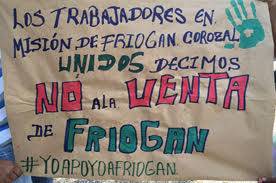 LOS TRABAJADORES EN
MISIÓN DE FRIOGAN COROZAL
UNIDOS DECIMOS
NO A LA VENTA
DE FRIOGAN
#YOAPOYOAFRIOGAN